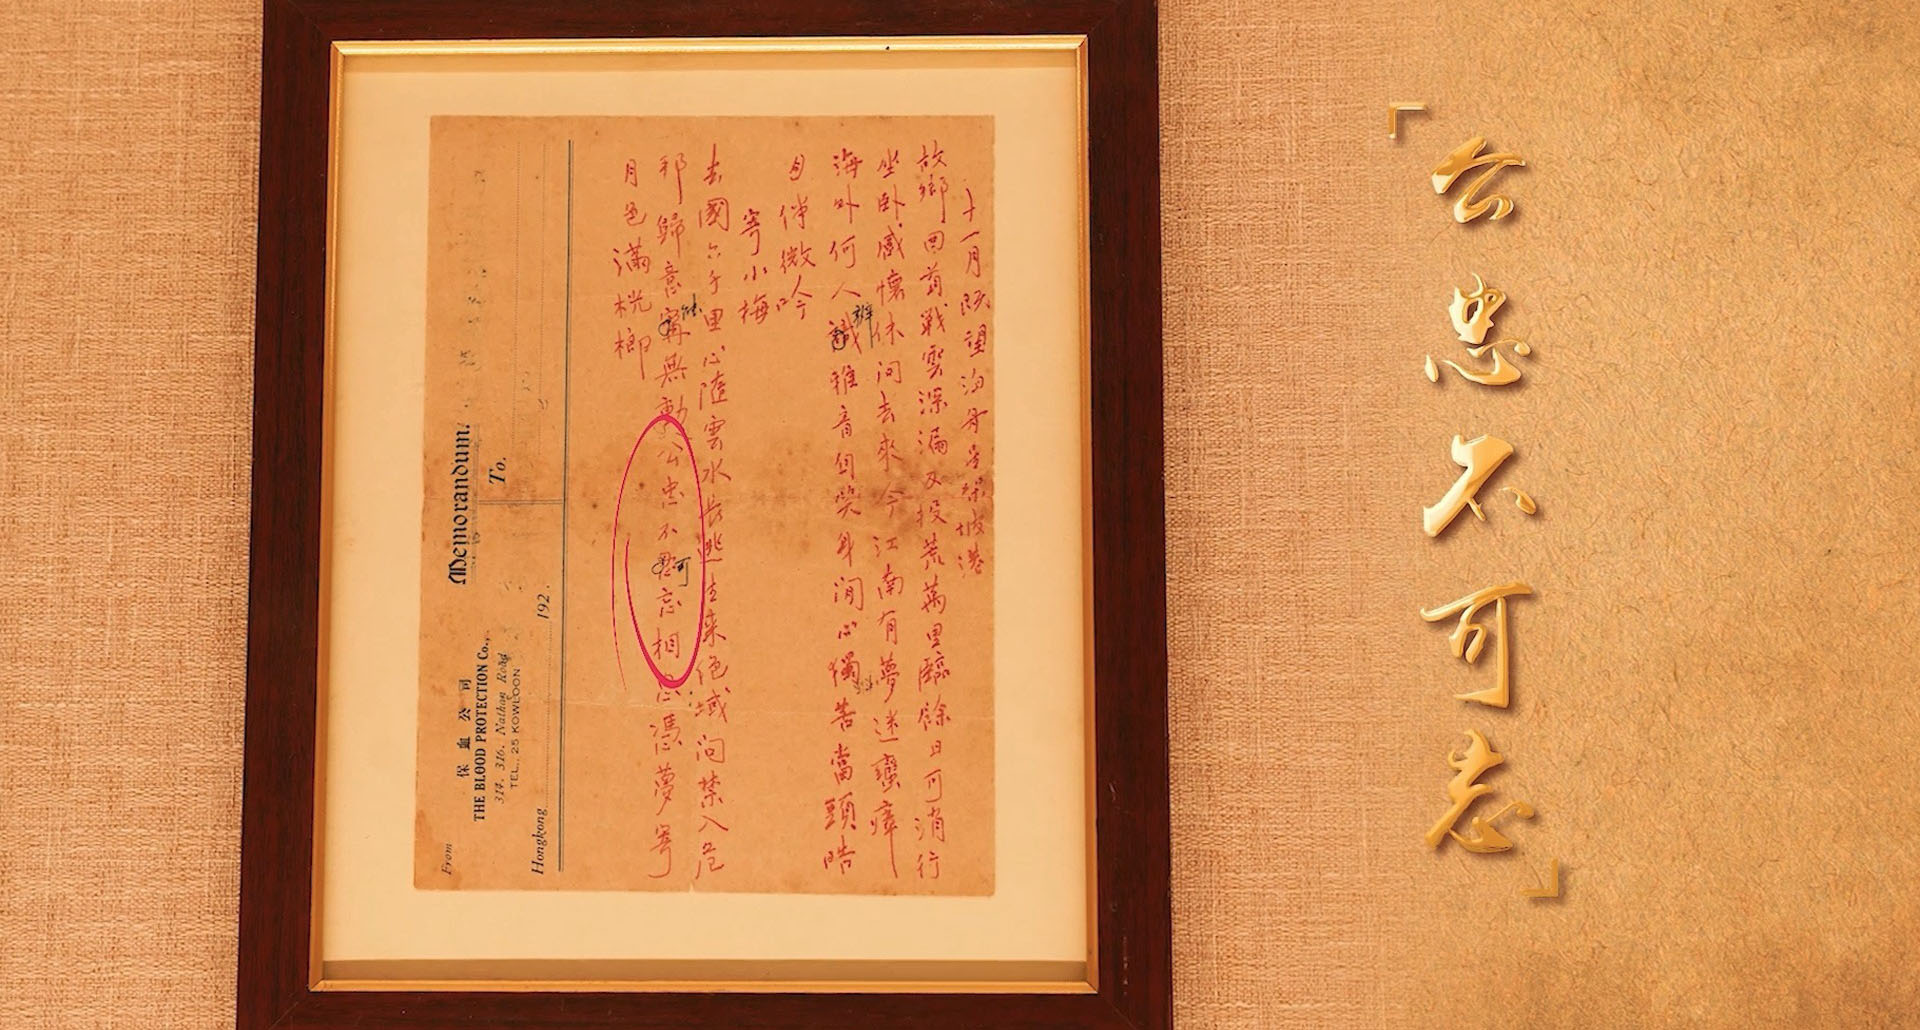 「公忠不可忘」
十一月既望泊舟坡港
故鄉回首戰雲深漏投荒萬里臨餘日可消行
坐臥感懷休問去來今江南有夢迷蠻瘴
海外何人識辨雅音自笑身閒心獨苦當頭皓
月伴微吟
寄小梅
去國六千里心隨雲水長逃生來絕域問禁入危
邦歸意寧無動公忠不忍可忘相思憑夢寄
月色滿桄榔
Memorandum.
From
保血公司
THE BLOOD PROTECTION Co.,
314, 316, Nathan Road
TEL. 25 KOWLOON
To.
Hongkong 192 .